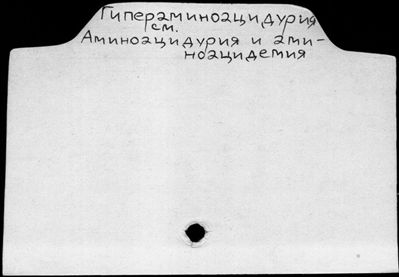 Гипераминоацидурия
см.
Аминоацидурия и ами-
ноацидемия